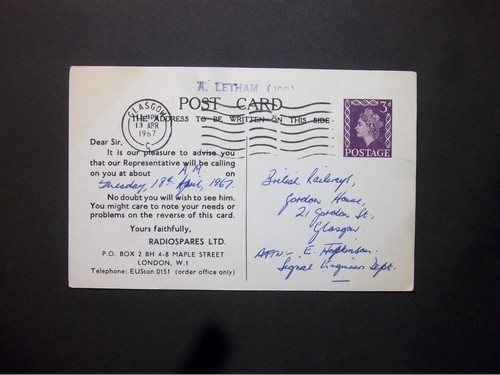 A. LETHAM (JOR)
POST CARD
THE ADDRESS TO BE WRITTEN ON THIS SIDE
GLASGOW
13 APR
1967
C
3d
POSTAGE
Dear Sir,
It is our pleasure to advise you
that our Representative will be calling
on you at about A.M. on
Tuesday, 18th April, 1967.
No doubt you will wish to see him.
You might care to note your needs or
problems on the reverse of this card.
Yours faithfully,
RADIOSPARES LTD.
P.O. BOX 2 BH 4-8 MAPLE STREET
LONDON, W.1
Telephone: EUSton 0151 (order office only)
British Railways,
Gordon House,
21 Gordon St.,
Glasgow.
ATTN:- E. Hopkinson.
Signal Engineers Dept.